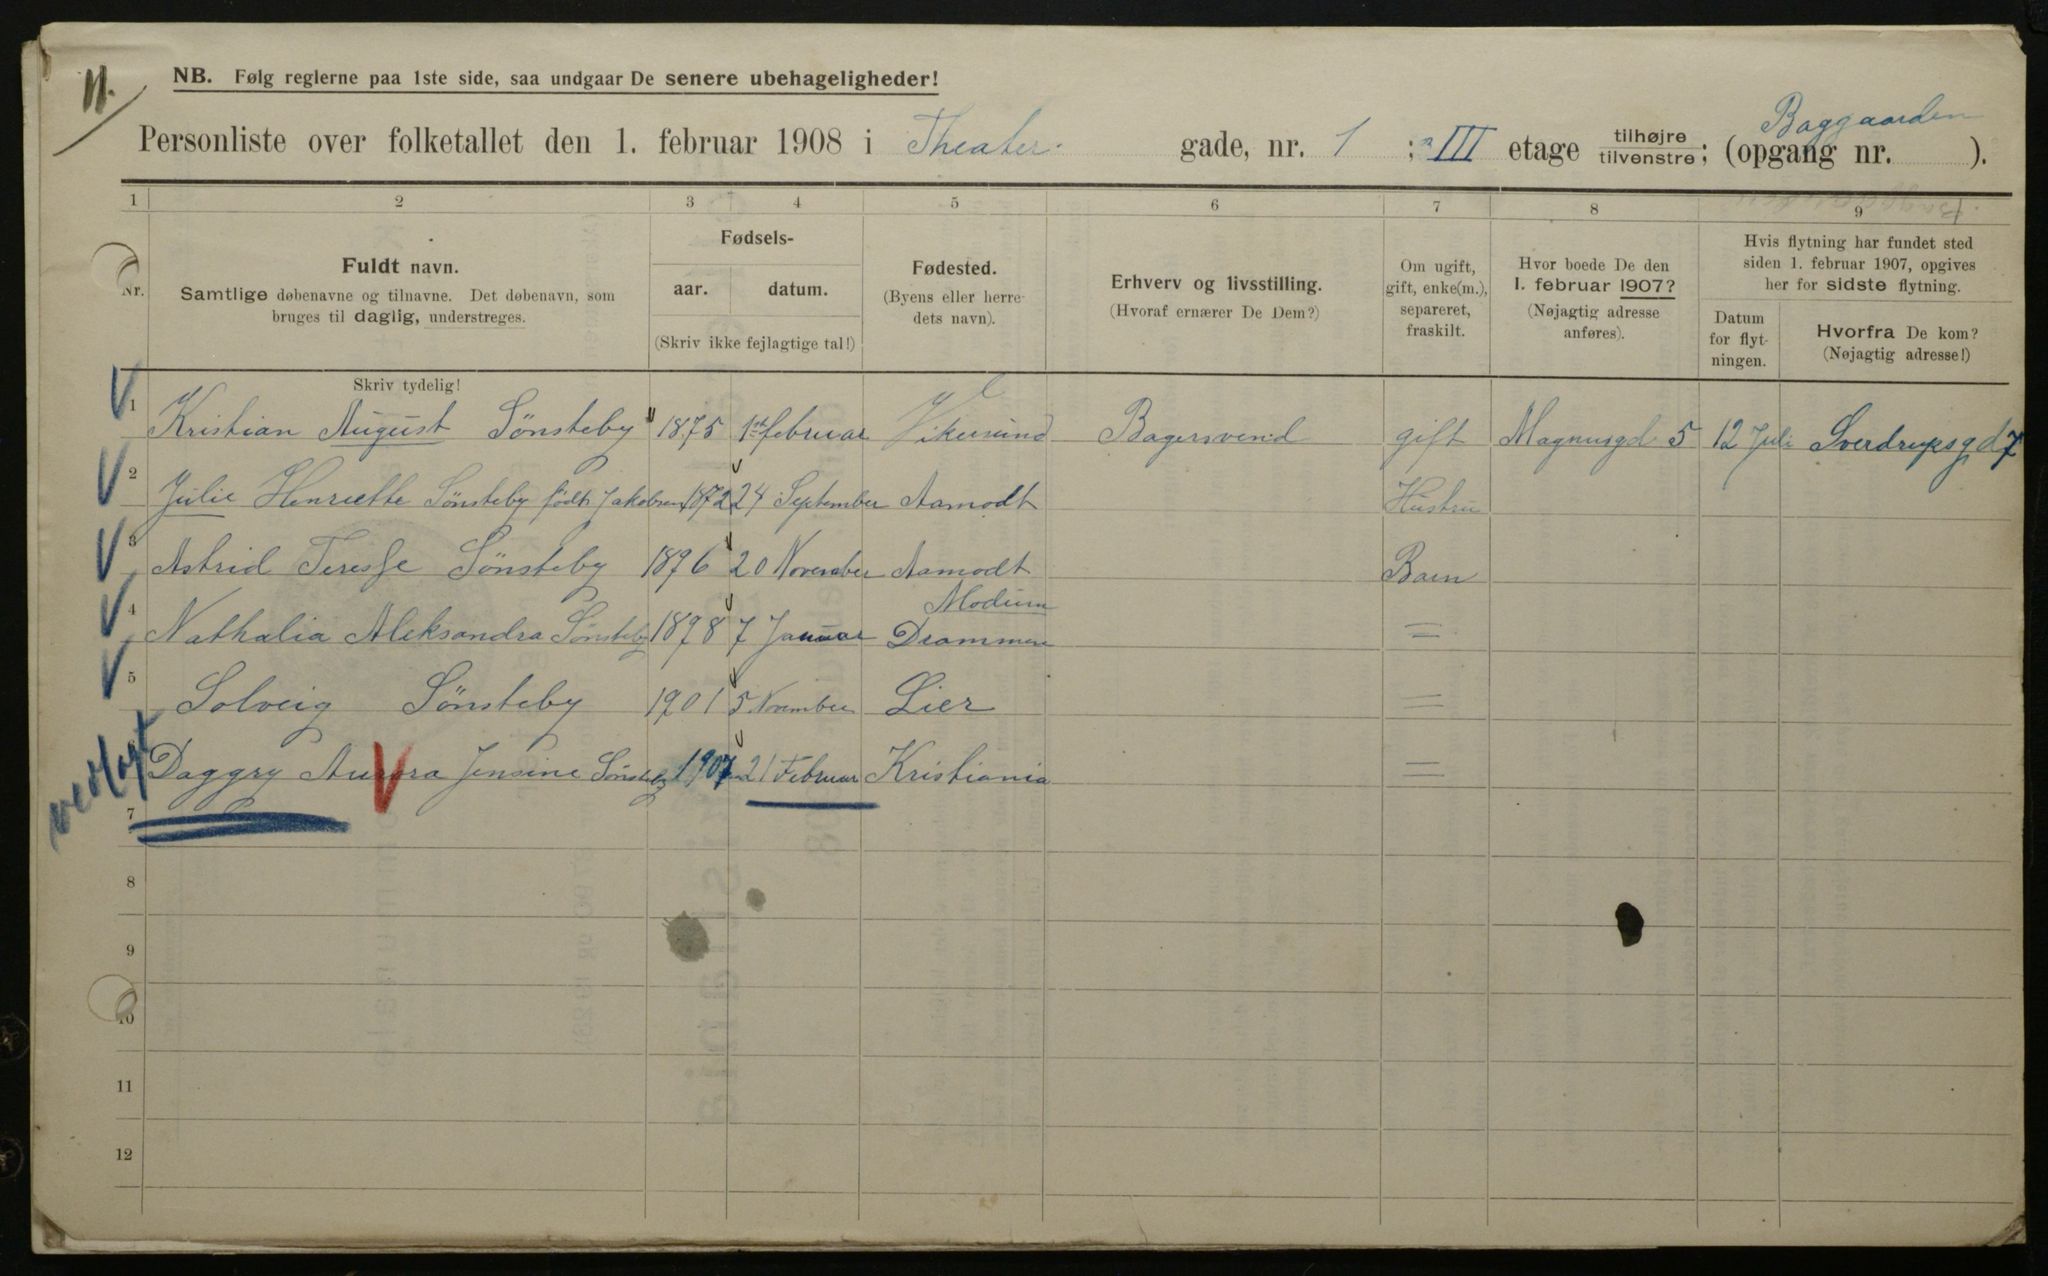 11.
NB. Følg reglerne paa 1ste side, saa undgaar De senere ubehageligheder!
Baggaarden
Personliste over folketallet den 1. februar 1908 i Theater- gade, nr. 1 ; III etage tilhøjre tilvenstre; (opgang nr. ).
1 2 3 4 5 6 7 8 9
Nr.
Fuldt navn.
Samtlige døbenavne og tilnavne. Det døbenavn, som
bruges til daglig, understreges.
Skriv tydelig!
Fødsels-
aar. datum.
(Skriv ikke fejlagtige tal!)
Fødested.
(Byens eller herre-
dets navn).
Erhverv og livsstilling.
(Hvoraf ernærer De Dem?)
Om ugift,
gift, enke(m.),
separeret,
fraskilt.
Hvor boede De den
1. februar 1907?
(Nøjagtig adresse
anføres).
Hvis flytning har fundet sted
siden 1. februar 1907, opgives
her for sidste flytning.
Datum
for flyt-
ningen.
Hvorfra De kom?
(Nøjagtig adresse!)
1 Kristian August Sønsteby 1875 1ste februar Vikersund Bagersvend gift Magnusgd 5 12 Juli Sverdrupsgd 7
2 Julie Henriette Sønsteby født Jakobsen 1872 24 September Aamodt Hustru
3 Astrid Teresse Sønsteby 1896 20 November Aamodt Barn
Modum
4 Nathalia Aleksandra Sønsteby 1898 7 Januar Drammen =
5 Solveig Sønsteby 1901 5 November Lier =
6 Daggry Aurora Jensine Sønsteby 1907 21 Februar Kristiania =
vedlagt
7
8
9
10
11
12